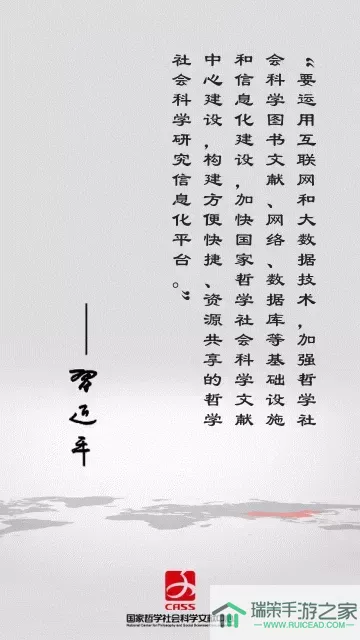 “要运用互联网和大数据技术，加强哲学社
会科学图书文献、网络、数据库等基础设施
和信息化建设，加快国家哲学社会科学文献
中心建设，构建方便快捷、资源共享的哲学
社会科学研究信息化平台。”
——习近平
CASS
国家哲学社会科学文献中心
National Center for Philosophy and Social Sciences
瑞策手游之家
WWW.RUICEAD.COM